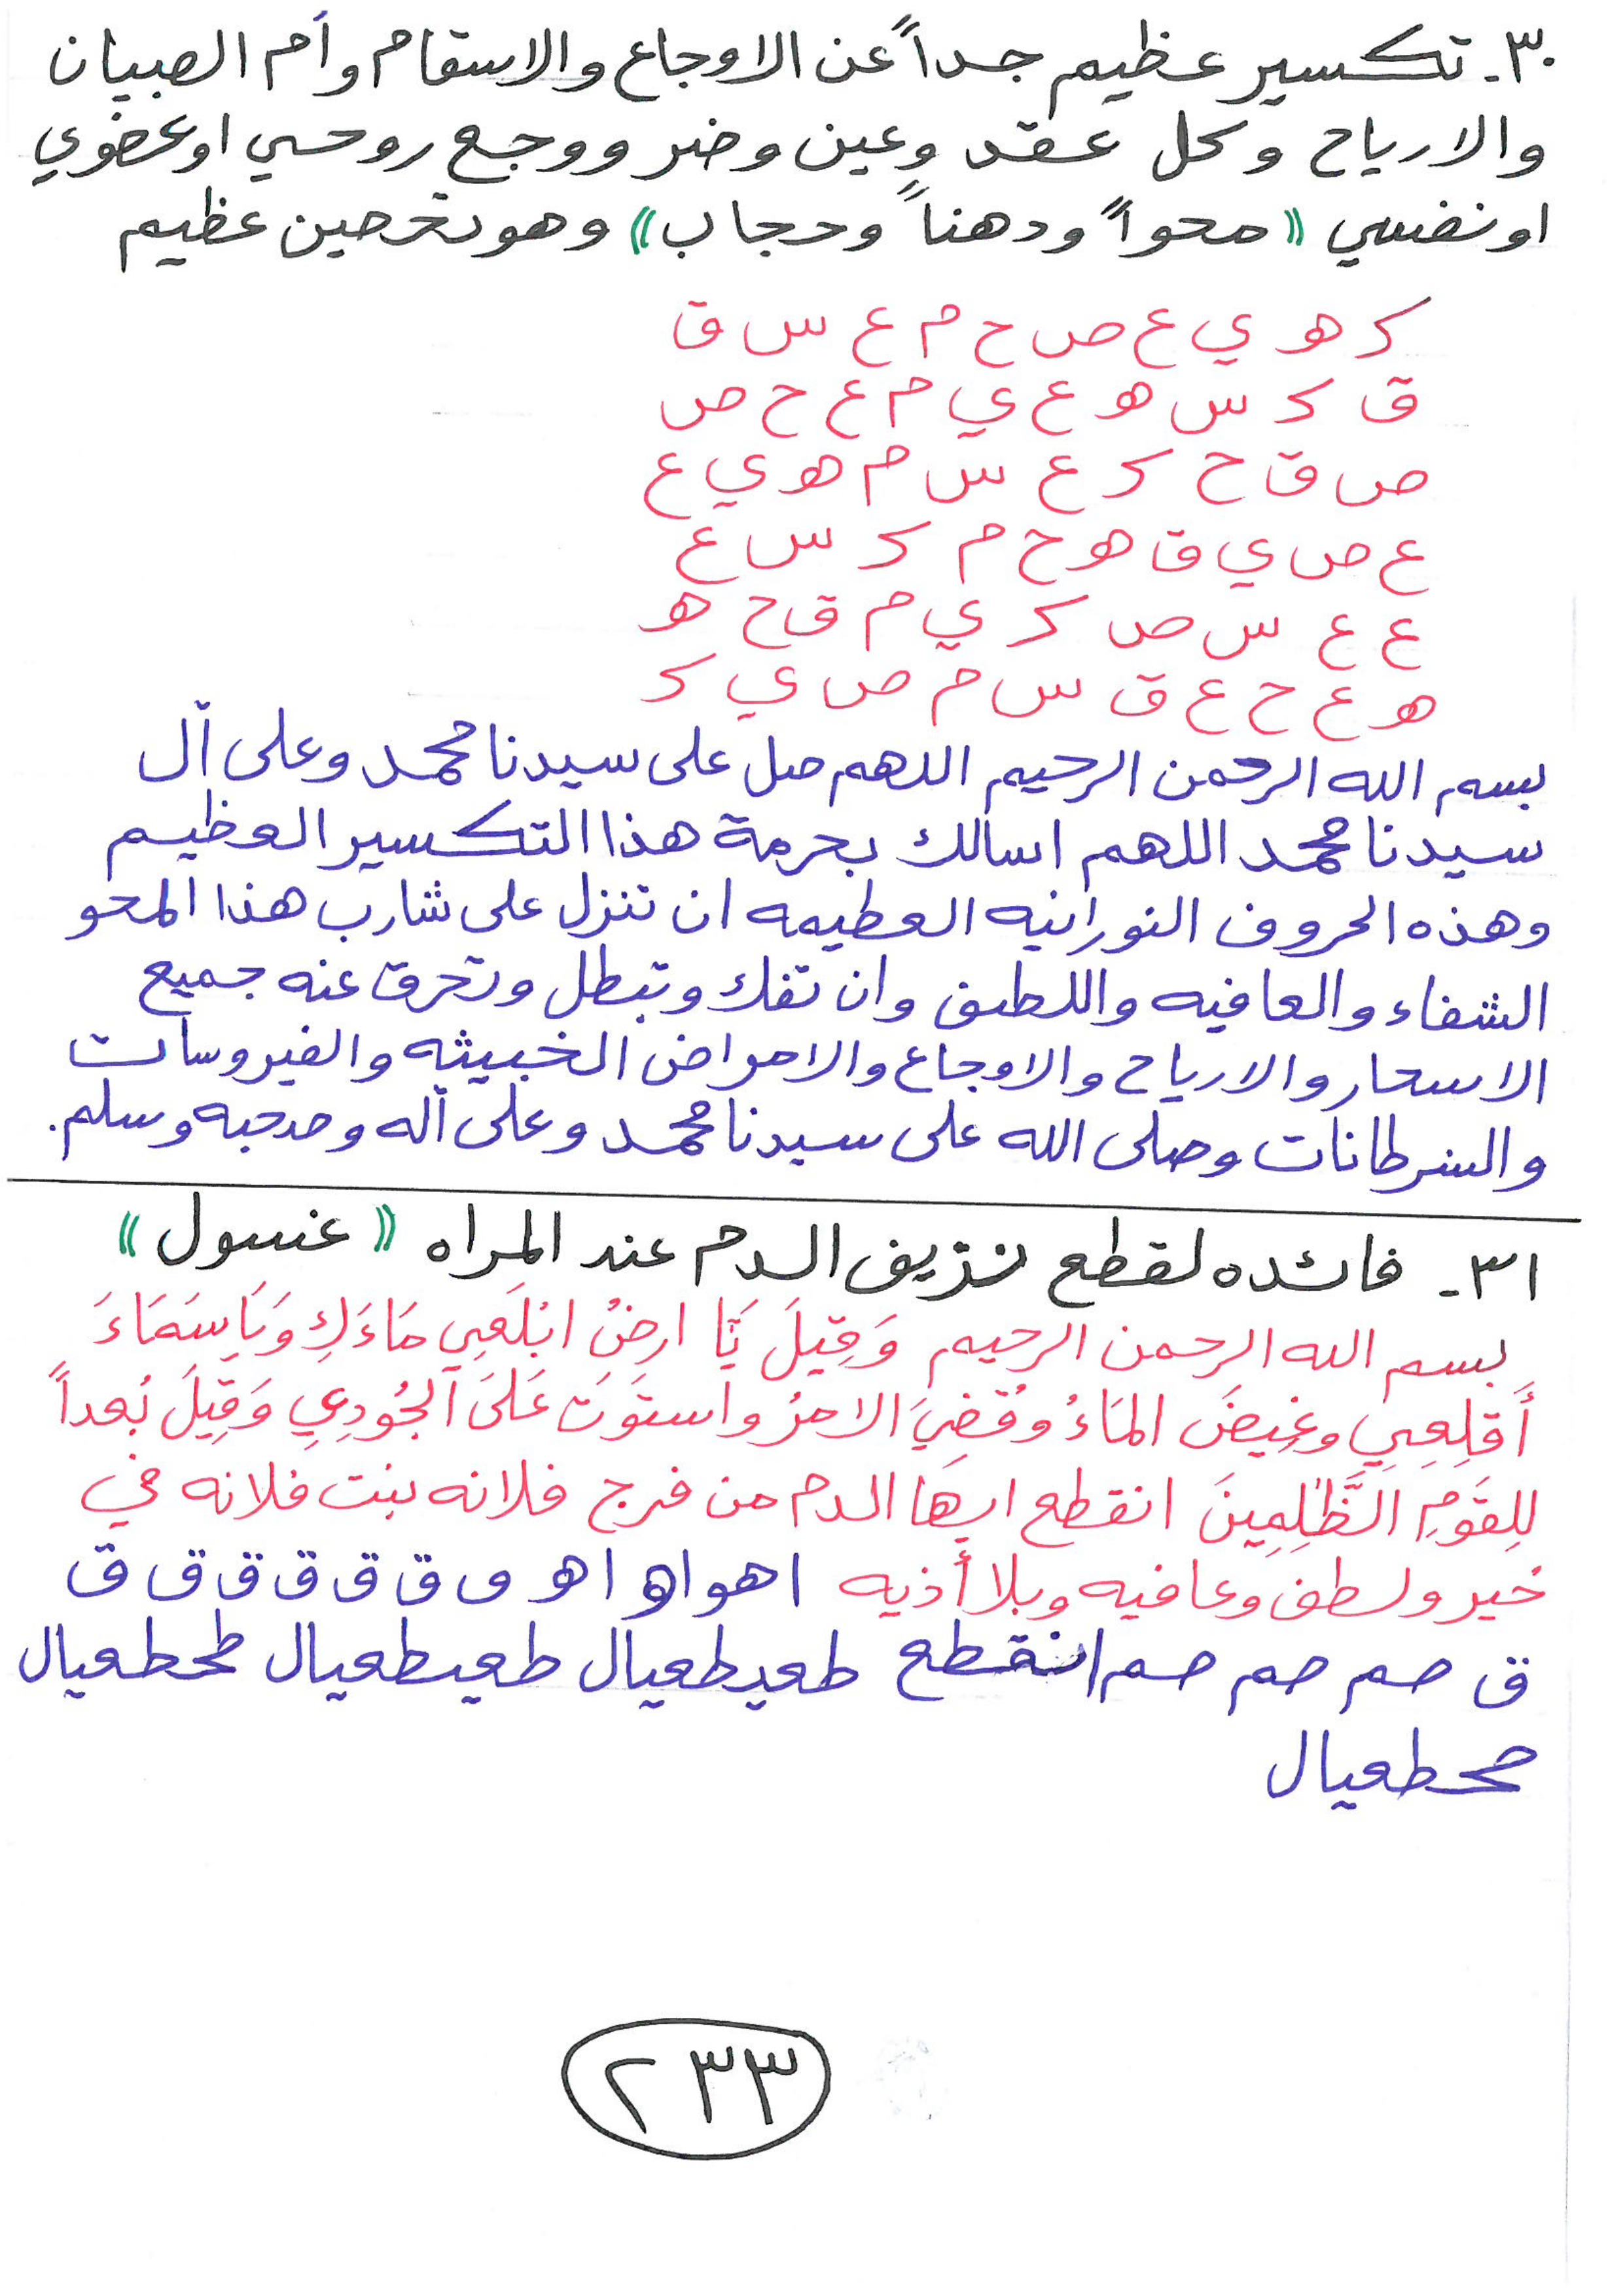 ٣٠- تكسير عظيم جداً عن الاوجاع والاسقام وأم الصبيان
والارياح وكل عقد وعين وضر ووجع روحي او عضوي
او نفسي «محواً ودهناً وحجاب» وهو تحصين عظيم
كـ هـ ي ع ص ح م ع س ق
ق كـ س هـ ع ي م ع ح ص
ص ق ح كـ ع س م هـ ي ع
ع ص ي ق هـ ح م كـ س ع
ع ع س ص كـ ي م ق ح هـ
هـ ع ح ع ق س م ص ي كـ
بسم الله الرحمن الرحيم اللهم صل على سيدنا محمد وعلى آل
سيدنا محمد اللهم اسالك بحرمة هذا التكسير العظيم
وهذه الحروف النورانيه العطيمه ان تنزل على شارب هذا المحو
الشفاء والعافيه واللطف وان تفك وتبطل وتحرق عنه جميع
الاسحار والارياح والاوجاع والامراض الخبيثه والفيروسات
والسرطانات وصلى الله على سيدنا محمد وعلى آله وصحبه وسلم.
٣١- فائده لقطع نزيف الدم عند المراه «غسول»
بسم الله الرحمن الرحيم وَقِيلَ يَا ارضُ ابْلَعِي مَاءَكِ وَيَا سَمَاءُ
أَقلِعِي وغِيضَ المَاءُ وَقُضِيَ الامرُ واستَوَت عَلَى الجُودِي وَقِيلَ بُعداً
لِلقَومِ الظَّٰلِمِينَ انقطع ايها الدم من فرج فلانه بنت فلانه في
خير ولطف وعافيه وبلا أذيه اهواه اهـ و ق ق ق ق ق ق
ق صم صم صم انقطع طعيطعيال طعيطعيال طحطعيال
صحطعيال
٢٣٣